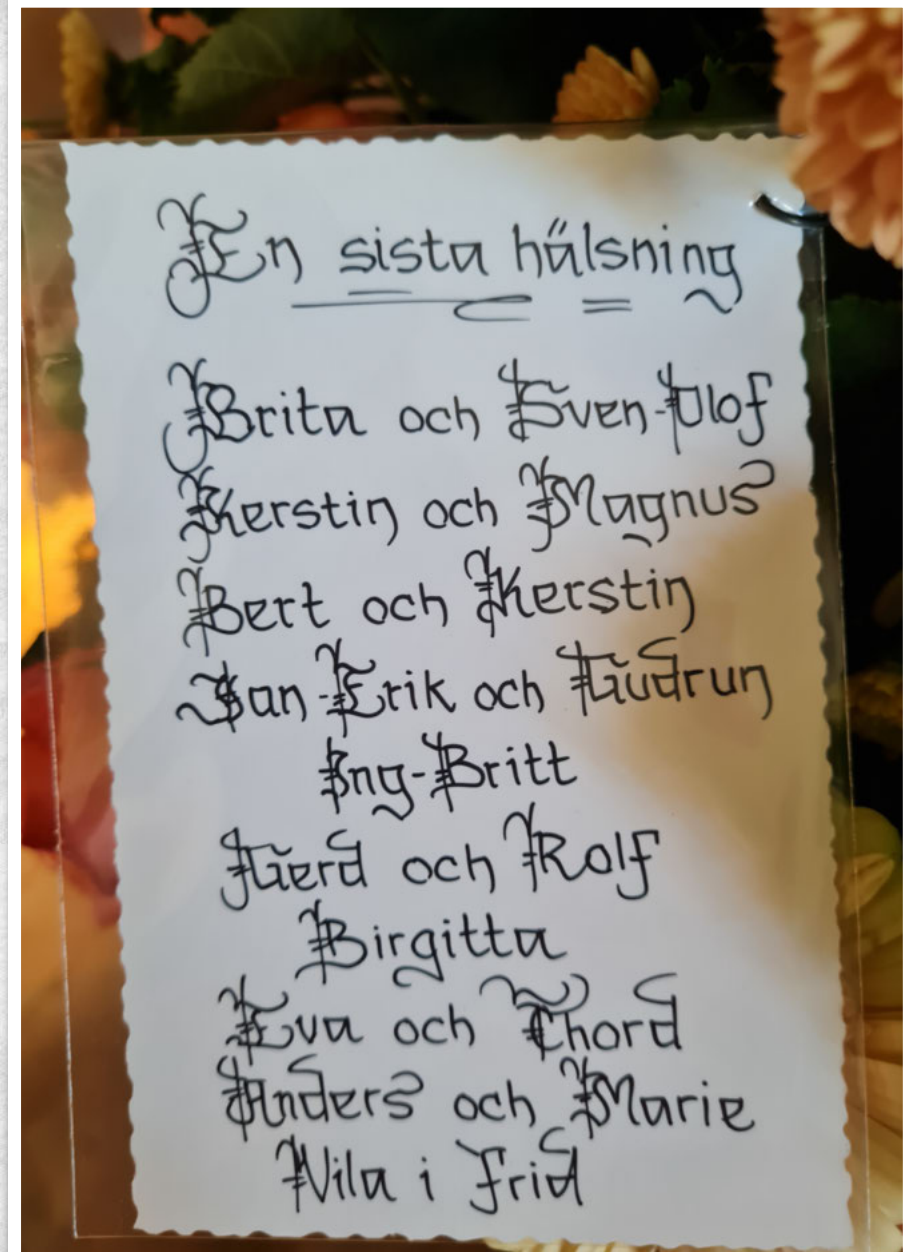 En sista hälsning
Brita och Sven-Olof
Kerstin och Magnus
Bert och Kerstin
Jan-Erik och Gudrun
Ing-Britt
Gerd och Rolf
Birgitta
Eva och Thord
Anders och Marie
Vila i frid